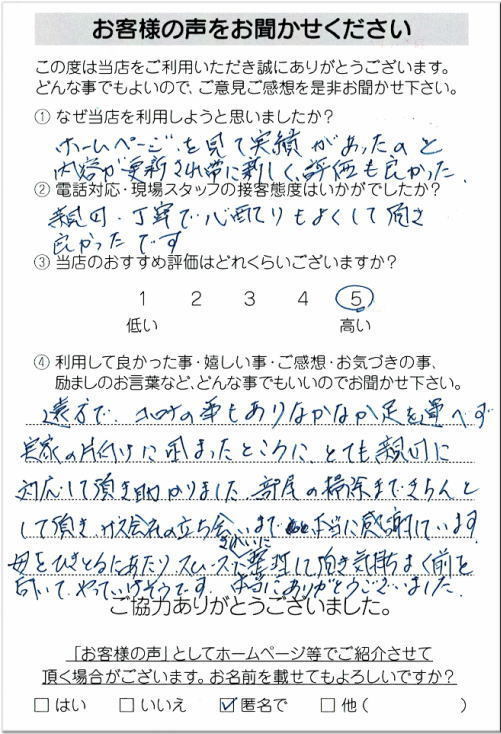 お客様の声をお聞かせください
この度は当店をご利用いただき誠にありがとうございます。
どんな事でもよいので、ご意見ご感想を是非お聞かせ下さい。
① なぜ当店を利用しようと思いましたか？
ホームページを見て実績があったのと
内容が更新され常に新しく、評価も良かった
② 電話対応・現場スタッフの接客態度はいかがでしたか？
親切・丁寧で心配りもよくして頂き
良かったです
③ 当店のおすすめ評価はどれくらいございますか？
1 2 3 4 5
低い 高い
④ 利用して良かった事・嬉しい事・ご感想・お気づきの事、
励ましのお言葉など、どんな事でもいいのでお聞かせ下さい。
遠方で、コロナの事もありなかなか足を運べず
実家の片付けに困まったところに、とても親切に
対応して頂き助かりました。部屋の掃除まできちんと
して頂き、ガス会社の立ち会いまで 本当に感謝しています。
母をひきとるにあたりスムーズに きれいに 整理して頂き気持ちよく前を
向いて、やっていけそうです。本当にありがとうございました。
ご協力ありがとうございました。
「お客様の声」としてホームページ等でご紹介させて
頂く場合がございます。お名前を載せてもよろしいですか？
□ はい □ いいえ ☑ 匿名で □ 他( )